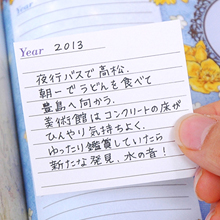 Year 2013
夜行バスで高松。
朝一でうどんを食べて
豊島へ向かう。
美術館はコンクリートの床が
ひんやり気持ちよく、
ゆったり鑑賞していたら
新たな発見。水の音！
Year